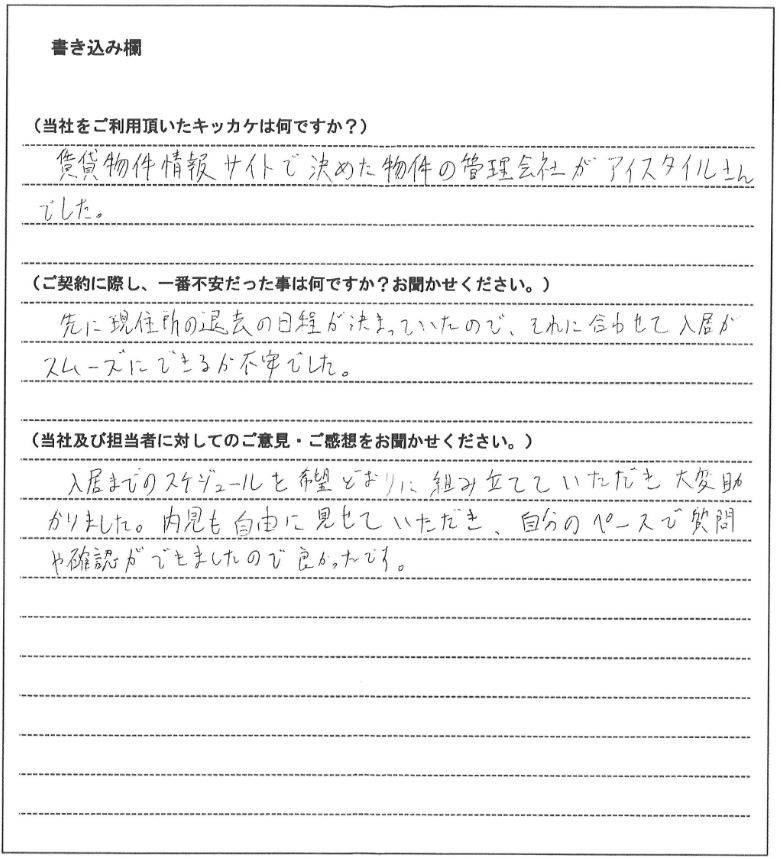 書き込み欄
（当社をご利用頂いたキッカケは何ですか？）
賃貸物件情報サイトで決めた物件の管理会社がアイスタイルさん
でした。
（ご契約に際し、一番不安だった事は何ですか？お聞かせください。）
先に現住所の退去の日程が決まっていたので、それに合わせて入居が
スムーズにできるか不安でした。
（当社及び担当者に対してのご意見・ご感想をお聞かせください。）
入居までのスケジュールを希望どおりに組み立てていただき大変助
かりました。内見も自由に見せていただき、自分のペースで質問
や確認ができましたので良かったです。